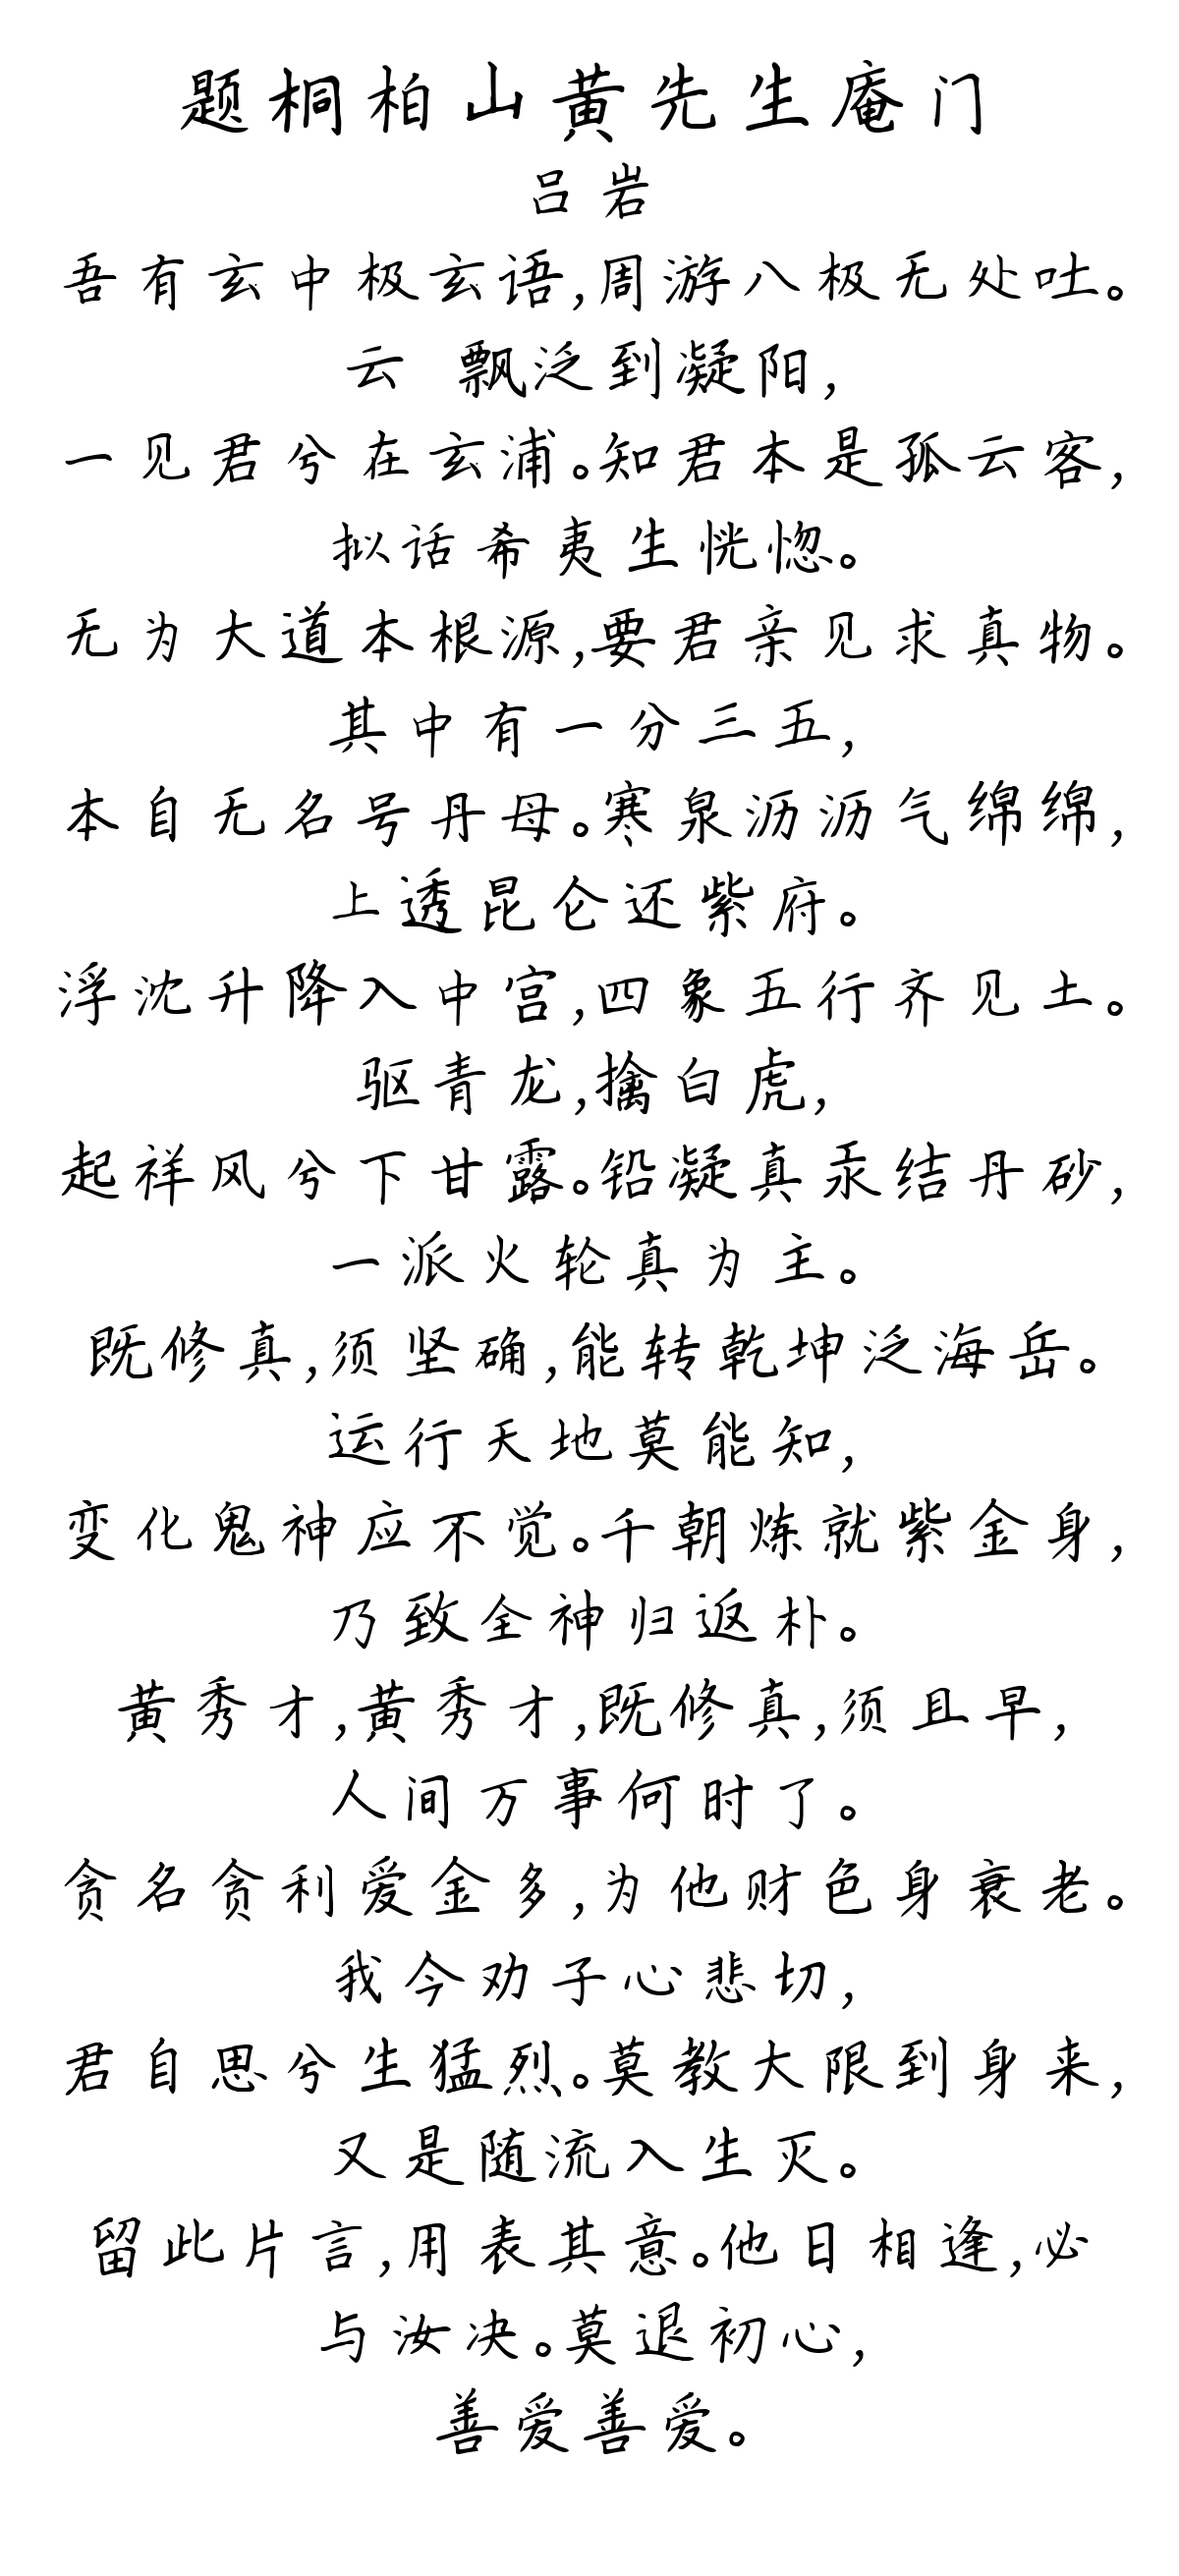 题桐柏山黄先生庵门
吕岩
吾有玄中极玄语,周游八极无处吐。
云 飘泛到凝阳,
一见君兮在玄浦。知君本是孤云客,
拟话希夷生恍惚。
无为大道本根源,要君亲见求真物。
其中有一分三五,
本自无名号丹母。寒泉沥沥气绵绵,
上透昆仑还紫府。
浮沈升降入中宫,四象五行齐见土。
驱青龙,擒白虎,
起祥风兮下甘露。铅凝真汞结丹砂,
一派火轮真为主。
既修真,须坚确,能转乾坤泛海岳。
运行天地莫能知,
变化鬼神应不觉。千朝炼就紫金身,
乃致全神归返朴。
黄秀才,黄秀才,既修真,须且早,
人间万事何时了。
贪名贪利爱金多,为他财色身衰老。
我今劝子心悲切,
君自思兮生猛烈。莫教大限到身来,
又是随流入生灭。
留此片言,用表其意。他日相逢,必
与汝决。莫退初心,
善爱善爱。